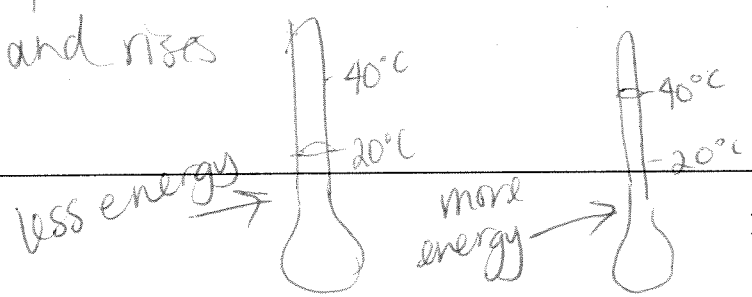 and rises
40°C
20°C
less energy
40°C
20°C
more
energy